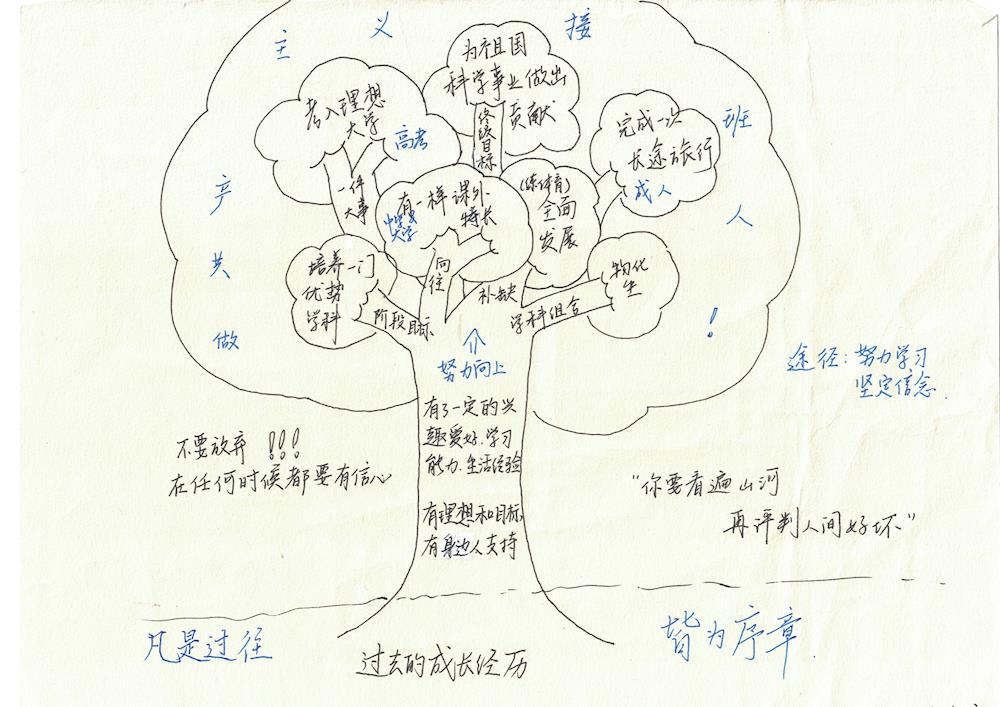 做共产主义接班人!
为祖国
科学事业做出
贡献
终级目标
考入理想
大学
高考
一件
大事
完成一次
长途旅行
成人
有一样课外
特长
大学
向往
(练体育)
全面
发展
补缺
培养一门
优势
学科
阶段目标
物化
生
学科组合
努力向上
有了一定的兴
趣爱好.学习
能力.生活经验
有理想和目标
有身边人支持
途径:努力学习
坚定信念.
不要放弃!!!
在任何时候都要有信心
"你要看遍山河
再评判人间好坏"
凡是过往
皆为序章.
过去的成长经历